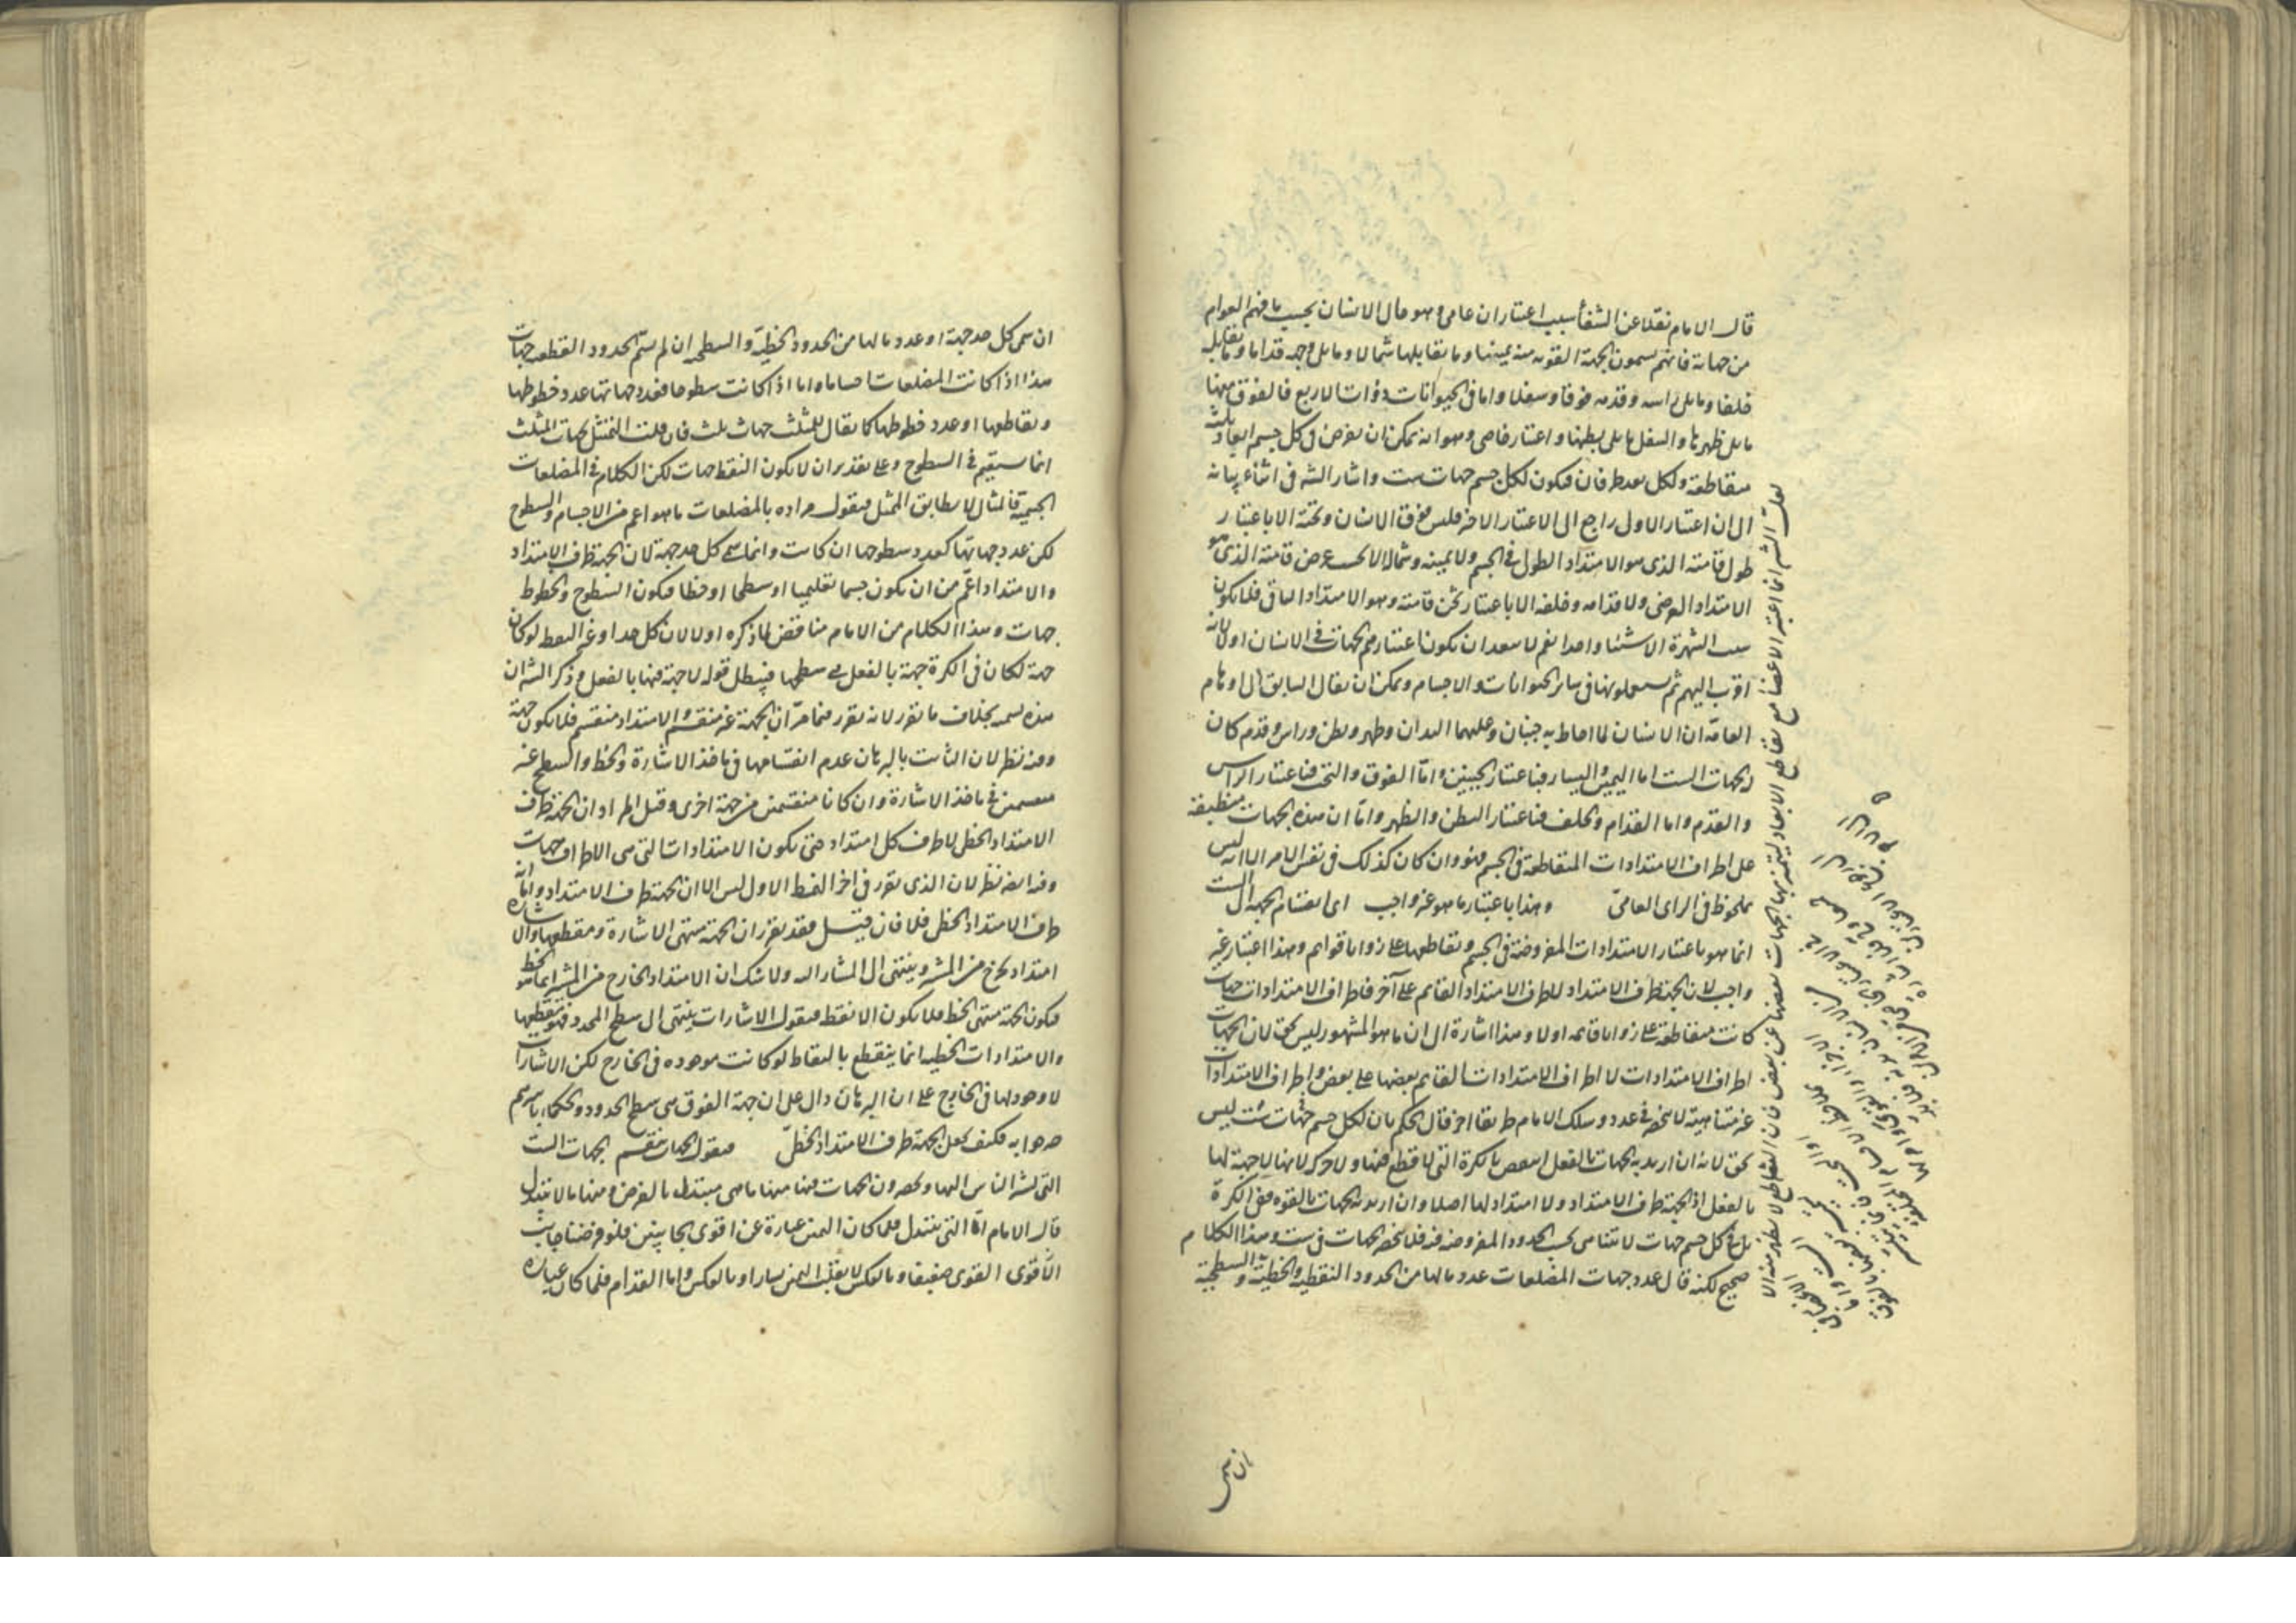 قال الامام نقلا عن الشفأ سبب اعتباران عامى وهو حال الانسان بحسب ما فهم العوام
من جهاته فانهم يسمون الجهة القوية منه يمينها وما يقابلها شمالا وما يلى وجهه قداما وما يقابله
خلفا وما يلى راسه وقدمه فوقا وسفلا واما فى الحيوانات ذوات الاربع فالفوق منها
ما يلى ظهرها والسفل ما يلى بطنها واعتبار خاصى وهو انه يمكن ان يفرض فى كل جسم ابعاد ثلثة
متقاطعة ولكل بعد طرفان فيكون لكل جسم جهات ست واشار الشه فى اثناء بيانه
الى ان اعتبار الاول راجع الى الاعتبار الاخر فليس فوق الانسان وتحته الا باعتبار
طول قامته الذى هو الامتداد الطولى فى الجسم ولا يمينه وشماله الا بحسب عرض قامته الذى هو
الامتداد العرضى ولا قدامه وخلفه الا باعتبار ثخن قامته وهو الامتداد الباقى فلا يكون
سبب الشهرة الا شيئا واحدا نعم لا يبعد ان يكون اعتبارهم الجهات فى الانسان اولا لانه
اقرب اليهم ثم يستعملونها فى سائر الحيوانات والاجسام ويمكن ان يقال السابق الى اوهام
العامة ان الانسان لما احاط به جنبان وعليهما اليدان وظهر وبطن وراس وقدم كان
له الجهات الست اما اليمين واليسار فباعتبار الجنبين واما الفوق والتحت فباعتبار الراس
والقدم واما القدام والخلف فباعتبار البطن والظهر واما ان هذه الجهات منطبقة
على اطراف الامتدادات المتقاطعة فى الجسم فهو وان كان كذلك فى نفس الامر الا انه ليس
بملحوظ فى الراى العامى وهذا باعتبار ما هو غير واجب اى انقسام الجهة الى الست
انما هو باعتبار الامتدادات المفروضة فى الجسم وتقاطعها على زوايا قوايم وهذا اعتبار غير
واجب لان الجهة طرف الامتداد لا طرف الامتداد القايم على آخر فاطراف الامتدادات جهات
كانت متقاطعة على زوايا قايمة او لا وهذا اشارة الى ان ما هو المشهور ليس بحق لان الجهات
اطراف الامتدادات لا اطراف الامتدادات القايم بعضها على بعض واطراف الامتدادات
غير متناهية لا تنحصر فى عدد وسلك الامام طريقا اخر قال الحكم بان لكل جسم جهات ست ليس
بحق لانه ان اريد به الجهات بالفعل انتقض بالكرة التى لا قطع فيها ولا حركة لانها لا جهة لها
بالفعل اذ الجهة طرف الامتداد ولا امتداد لها اصلا وان اريد به الجهات بالقوة ففى الكرة
بل فى كل جسم جهات لا تتناهى بحسب الحدود المفروضة فيه فلا تنحصر الجهات فى ست وهذا الكلام
صحيح لكنه قال عدد جهات المضلعات عدد ما لها من الحدود النقطية والخطية والسطحية
لعل الشه انما اعتبر الاعضا مع تقاطع الابعاد ليتميز بها الجهات بعضها عن بعض فان التقاطع لا يظهر منه الا
ان سمى
ان سمى كل حد جهة او عدد ما لها من الحدود الخطية والسطحية ان لم يسم الحدود النقطية جهات
هذا اذا كانت المضلعات اجساما واما اذا كانت سطوحا فعدد جهاتها عدد خطوطها
ونقاطها او عدد خطوطها كما يقال للمثلث جهات ثلث فان قلت التمثيل بجهات المثلث
انما يستقيم فى السطوح وعلى تقدير ان لا يكون النقط جهات لكن الكلام فى المضلعات
الجسمية فالمثال لا يطابق الممثل فنقول مراده بالمضلعات ما هو اعم من الاجسام والسطوح
لكن عدد جهاتها كعدد سطوحها ان كانت وانما سمى كل حد جهة لان الجهة طرف الامتداد
والامتداد اعم من ان يكون جسما تعليميا او سطحا او خطا فيكون السطوح والخطوط
جهات وهذا الكلام من الامام مناقض لما ذكره اولا لان كل حد او غير النقط لو كان
جهة لكان فى الكرة جهة بالفعل هى سطحها فيبطل قوله لا جهة فيها بالفعل وذكر الشه ان
هذه تسمية بخلاف ما تقرر لانه تقرر فيما مر ان الجهة غير منقسمة والامتداد منقسم فلا يكون جهة
وفيه نظر لان الثابت بالبرهان عدم انقسامها فى ماخذ الاشارة والخط والسطح غير
منقسمين فى ماخذ الاشارة وان كانا منقسمين من جهة اخرى وقيل المراد ان الجهة طرف
الامتداد الخطى لا طرف كل امتداد حتى يكون الامتدادات التى هى الاطراف جهات
وفيه ايضا نظر لان الذى تقرر فى اخر النمط الاول ليس الا ان الجهة طرف الامتداد واما انه
طرف الامتداد الخطى فلا فان قيل فقد تقرر ان الجهة منتهى الاشارة ومقطعها والاشارة
امتداد يخرج من المشير وينتهى الى المشار اليه ولا شك ان الامتداد الخارج من المشير انما هو الخط
فيكون الجهة منتهى الخط فلا يكون الا نقطة فنقول الاشارات ينتهى الى سطح المحدد فهو مقطعها
والامتدادات الخطية انما ينقطع بالنقاط لو كانت موجوده فى الخارج لكن الاشارات
لا وجود لها فى الخارج على ان البرهان دال على ان جهة الفوق هى سطح المحدد والحكماء باسرهم
صرحوا به فكيف يجعل الجهة طرف الامتداد الخطى فنقول الجهات ينقسم الجهات الست
التى يشير الناس اليها ويحصرون الجهات فيها منها ما هى متبدلة بالفرض ومنها ما لا يتبدل
قال الامام اما التى يتبدل فلما كان اليمين عبارة عن اقوى الجانبين فلو فرضنا جانب
الاقوى القوى ضعيفا وبالعكس لانقلب اليمين يسارا وبالعكس واما القدام فلما كان عبارة